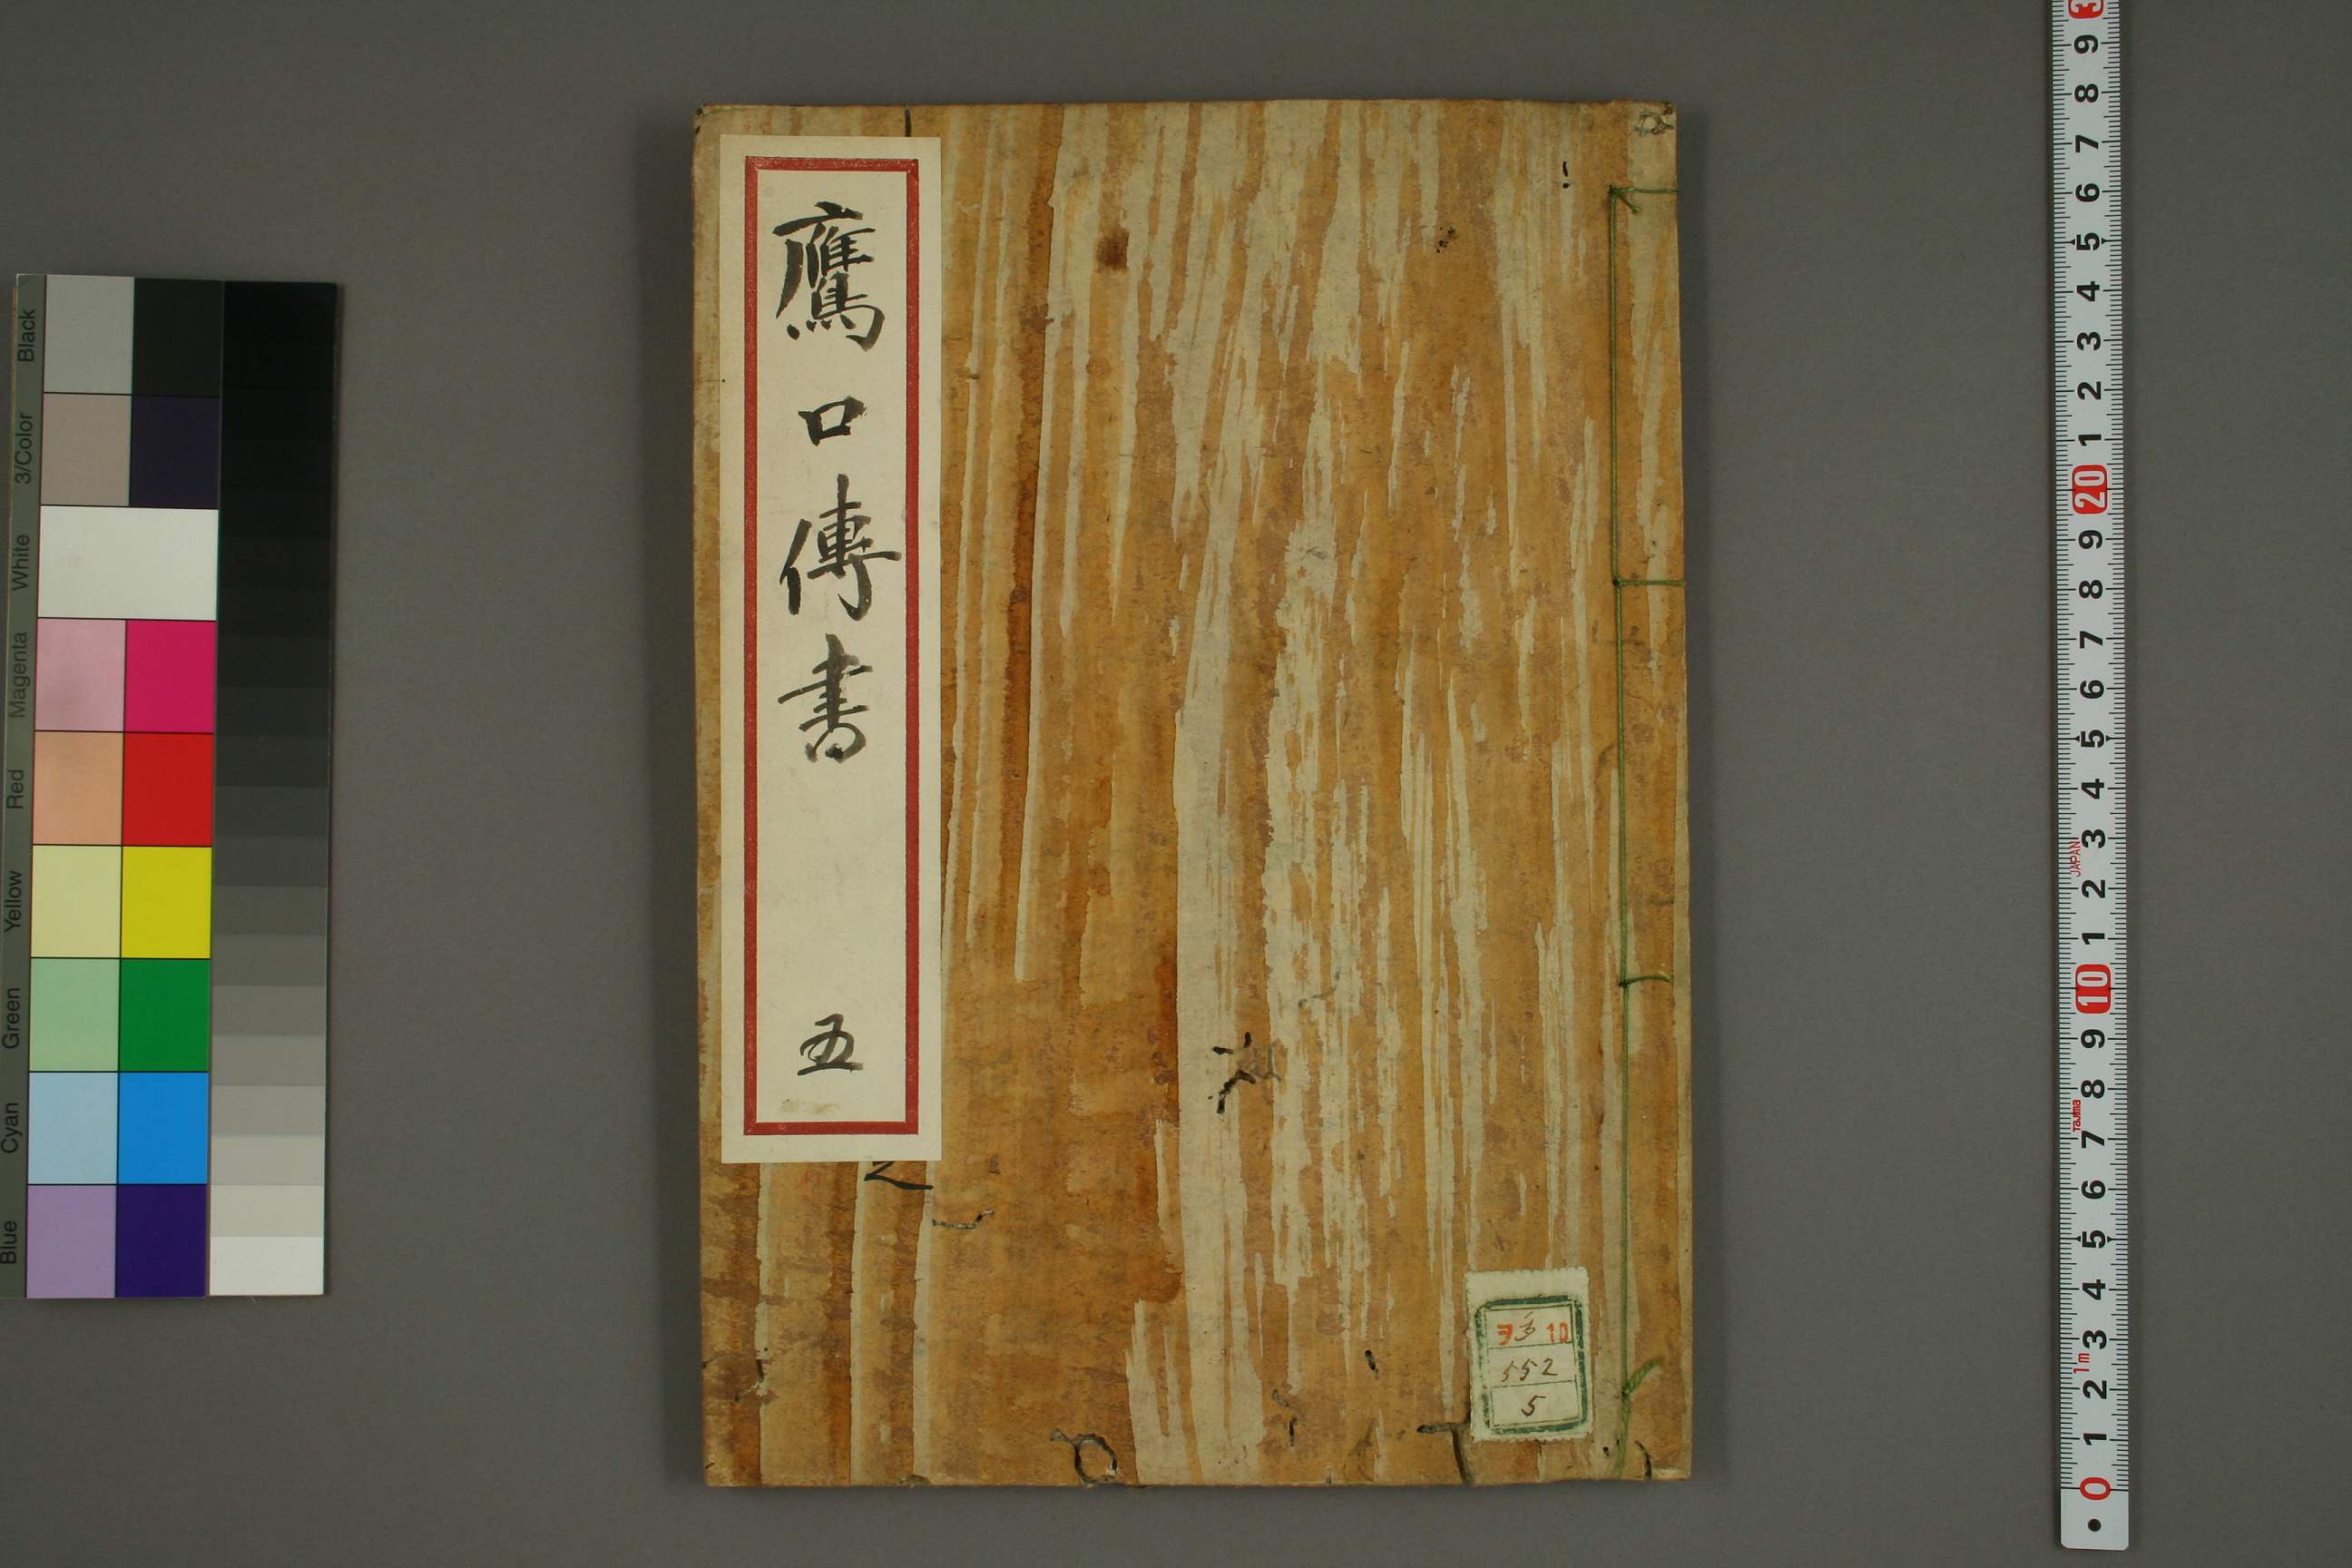 鷹口傳書 五
ヲ 10
552
5
Black
3/Color
White
Magenta
Red
Yellow
Green
Cyan
Blue
9
8
7
6
5
4
3
2
1
20
9
8
7
6
5
4
3
JAPAN
2
1
10
9
8
Tajima
7
6
5
4
3
1m
2
1
0